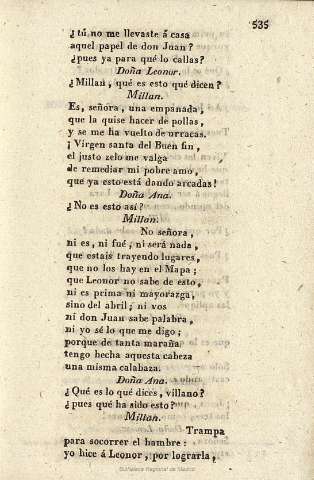 535
¿tú no me llevaste á casa
aquel papel de don Juan?
¿pues ya para qué lo callas?
Doña Leonor.
¿Millan, qué es esto qué dicen?
Millan.
Es, señora, una empanada,
que la quise hacer de pollas,
y se me ha vuelto de urracas.
¡Virgen santa del Buen fin,
el justo zelo me valga
de remediar mi pobre amo,
que ya esto está dando arcadas!
Doña Ana.
¿No es esto así?
Millan.
No señora,
ni es, ni fué, ni será nada,
que estais trayendo lugares,
que no los hay en el Mapa;
que Leonor no sabe de esto,
ni es prima ni mayorazga,
sino del abril; ni vos
ni don Juan sabe palabra,
ni yo sé lo que me digo;
porque de tanta maraña
tengo hecha aquesta cabeza
una misma calabaza.
Doña Ana.
¿Qué es lo qué dices, villano?
¿pues qué ha sido esto?
Millan.
Trampa
para socorrer el hambre:
yo hice á Leonor, por lograrla,
Biblioteca Regional de Madrid